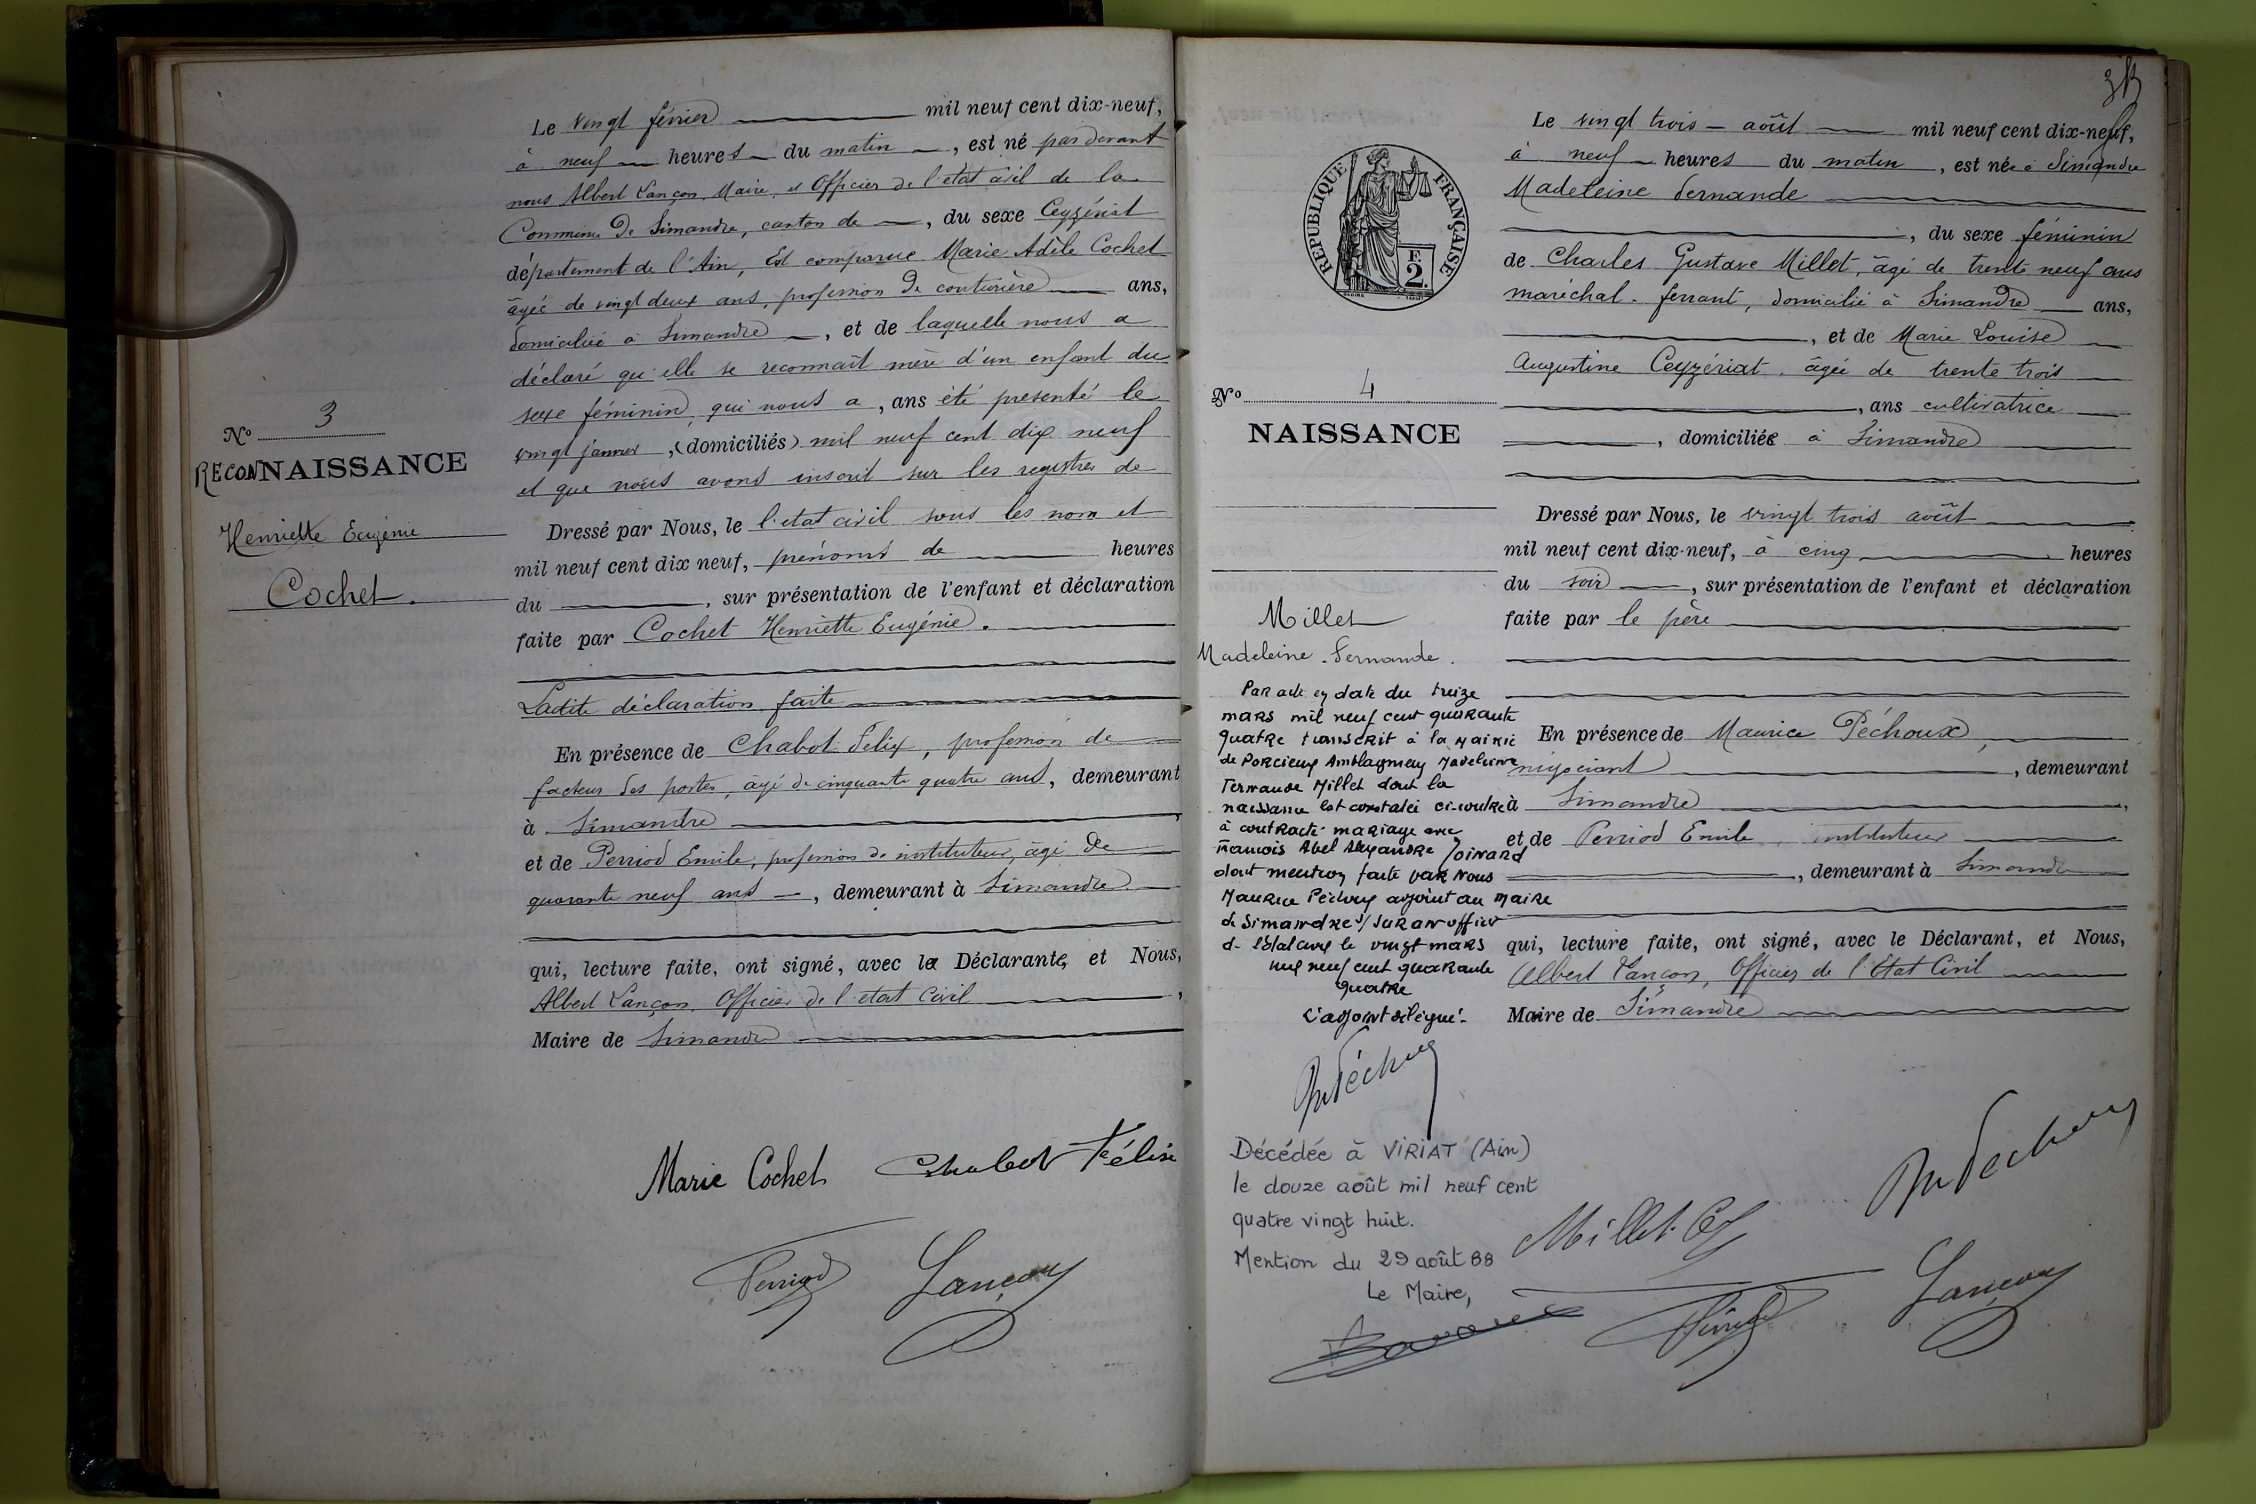 Le vingt février mil neuf cent dix-neuf,
à neuf heures du matin, est né par devant
nous Albert Lançon, Maire, et Officier de l'état civil de la
Commune de Simandre, canton de, du sexe Ceyzériat
département de l'Ain, Est comparue Marie Adèle Cochet
âgée de vingt deux ans, profession de couturière ans,
domiciliée à Simandre, et de laquelle nous a
déclaré qu'elle se reconnaît mère d'un enfant du
sexe féminin, qui nous a, ans été présenté le
vingt janvier, (domiciliés) mil neuf cent dix neuf
et que nous avons inscrit sur les registres de
No 3
RECONNAISSANCE
Henriette Eugénie
Cochet.
Dressé par Nous, le l'état civil sous les nom et
mil neuf cent dix neuf, prénoms de heures
du, sur présentation de l'enfant et déclaration
faite par Cochet Henriette Eugénie.
Ladite déclaration faite
En présence de Chabot Félix, profession de
facteur des postes, âgé de cinquante quatre ans, demeurant
à Simandre
et de Perriod Emile, profession de instituteur, âgé de
quarante neuf ans, demeurant à Simandre
qui, lecture faite, ont signé, avec la Déclarante, et Nous,
Albert Lançon, Officier de l'état Civil,
Maire de Simandre
Marie Cochet Chabot Félix
Perriod Lançon
Le vingt trois août mil neuf cent dix-neuf,
à neuf heures du matin, est née à Simandre
Madeleine Fernande
, du sexe féminin
de Charles Gustave Millet, âgé de trente neuf ans
maréchal-ferrant, domicilié à Simandre ans,
, et de Marie Louise
Augustine Ceyzériat, âgée de trente trois
, ans cultivatrice
, domiciliée à Simandre
RÉPUBLIQUE FRANÇAISE
F.
2.
No 4
NAISSANCE
Millet
Madeleine Fernande.
Par acte en date du treize
mars mil neuf cent quarante
quatre transcrit à la mairie
de Porcieux Amblagnieu Madeleine
Fernande Millet dont la
naissance est constatée ci-contre
à contracté mariage avec
François Abel Alexandre Joinard
dont mention faite par nous
Maurice Péchoux adjoint au Maire
de Simandre s/ Suran officier
de l'Etat civil le vingt mars
mil neuf cent quarante
quatre
L'adjoint délégué
M Péchoux
Décédée à VIRIAT (Ain)
le douze août mil neuf cent
quatre vingt huit.
Mention du 29 août 88
Le Maire,
Dressé par Nous, le vingt trois août
mil neuf cent dix-neuf, à cinq heures
du soir, sur présentation de l'enfant et déclaration
faite par le père
En présence de Maurice Péchoux,
négociant, demeurant
à Simandre,
et de Perriod Emile, instituteur
, demeurant à Simandre
qui, lecture faite, ont signé, avec le Déclarant, et Nous,
Albert Lançon, Officier de l'Etat Civil
Maire de Simandre
M Péchoux
Millet
Perriod Lançon